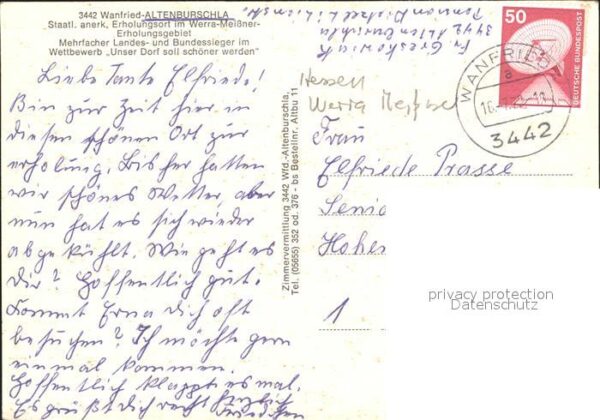 3442 Wanfried-ALTENBURSCHLA
Staatl. anerk. Erholungsort im Werra-Meißner-
Erholungsgebiet
Mehrfacher Landes- und Bundessieger im
Wettbewerb „Unser Dorf soll schöner werden"
Liebe Tante Elfriede!
Bin zur Zeit hier in
diesen schönen Ort zur
erholung. Bis her hatten
wir schönes Wetter, aber
nun hat es sich wieder
abgekühlt. Wie geht es
dir? Hoffentlich gut.
Kommt Erna dich oft
besuchen? Ich möchte gern
einmal kommen.
Hoffentlich klappt es mal.
Es grüßt dich recht herzlich
Zimmervermittlung 3442 Wfd.-Altenburschla,
Tel. (05655) 352 od. 376 - bs Bestellnr. Altbu 11
3442 Altenburschla
Hessen
Werra Meißner
50
DEUTSCHE BUNDESPOST
WANFRIED
a
3442
Frau
Elfriede Prasse
Senio
Hohen
1
privacy protection
Datenschutz